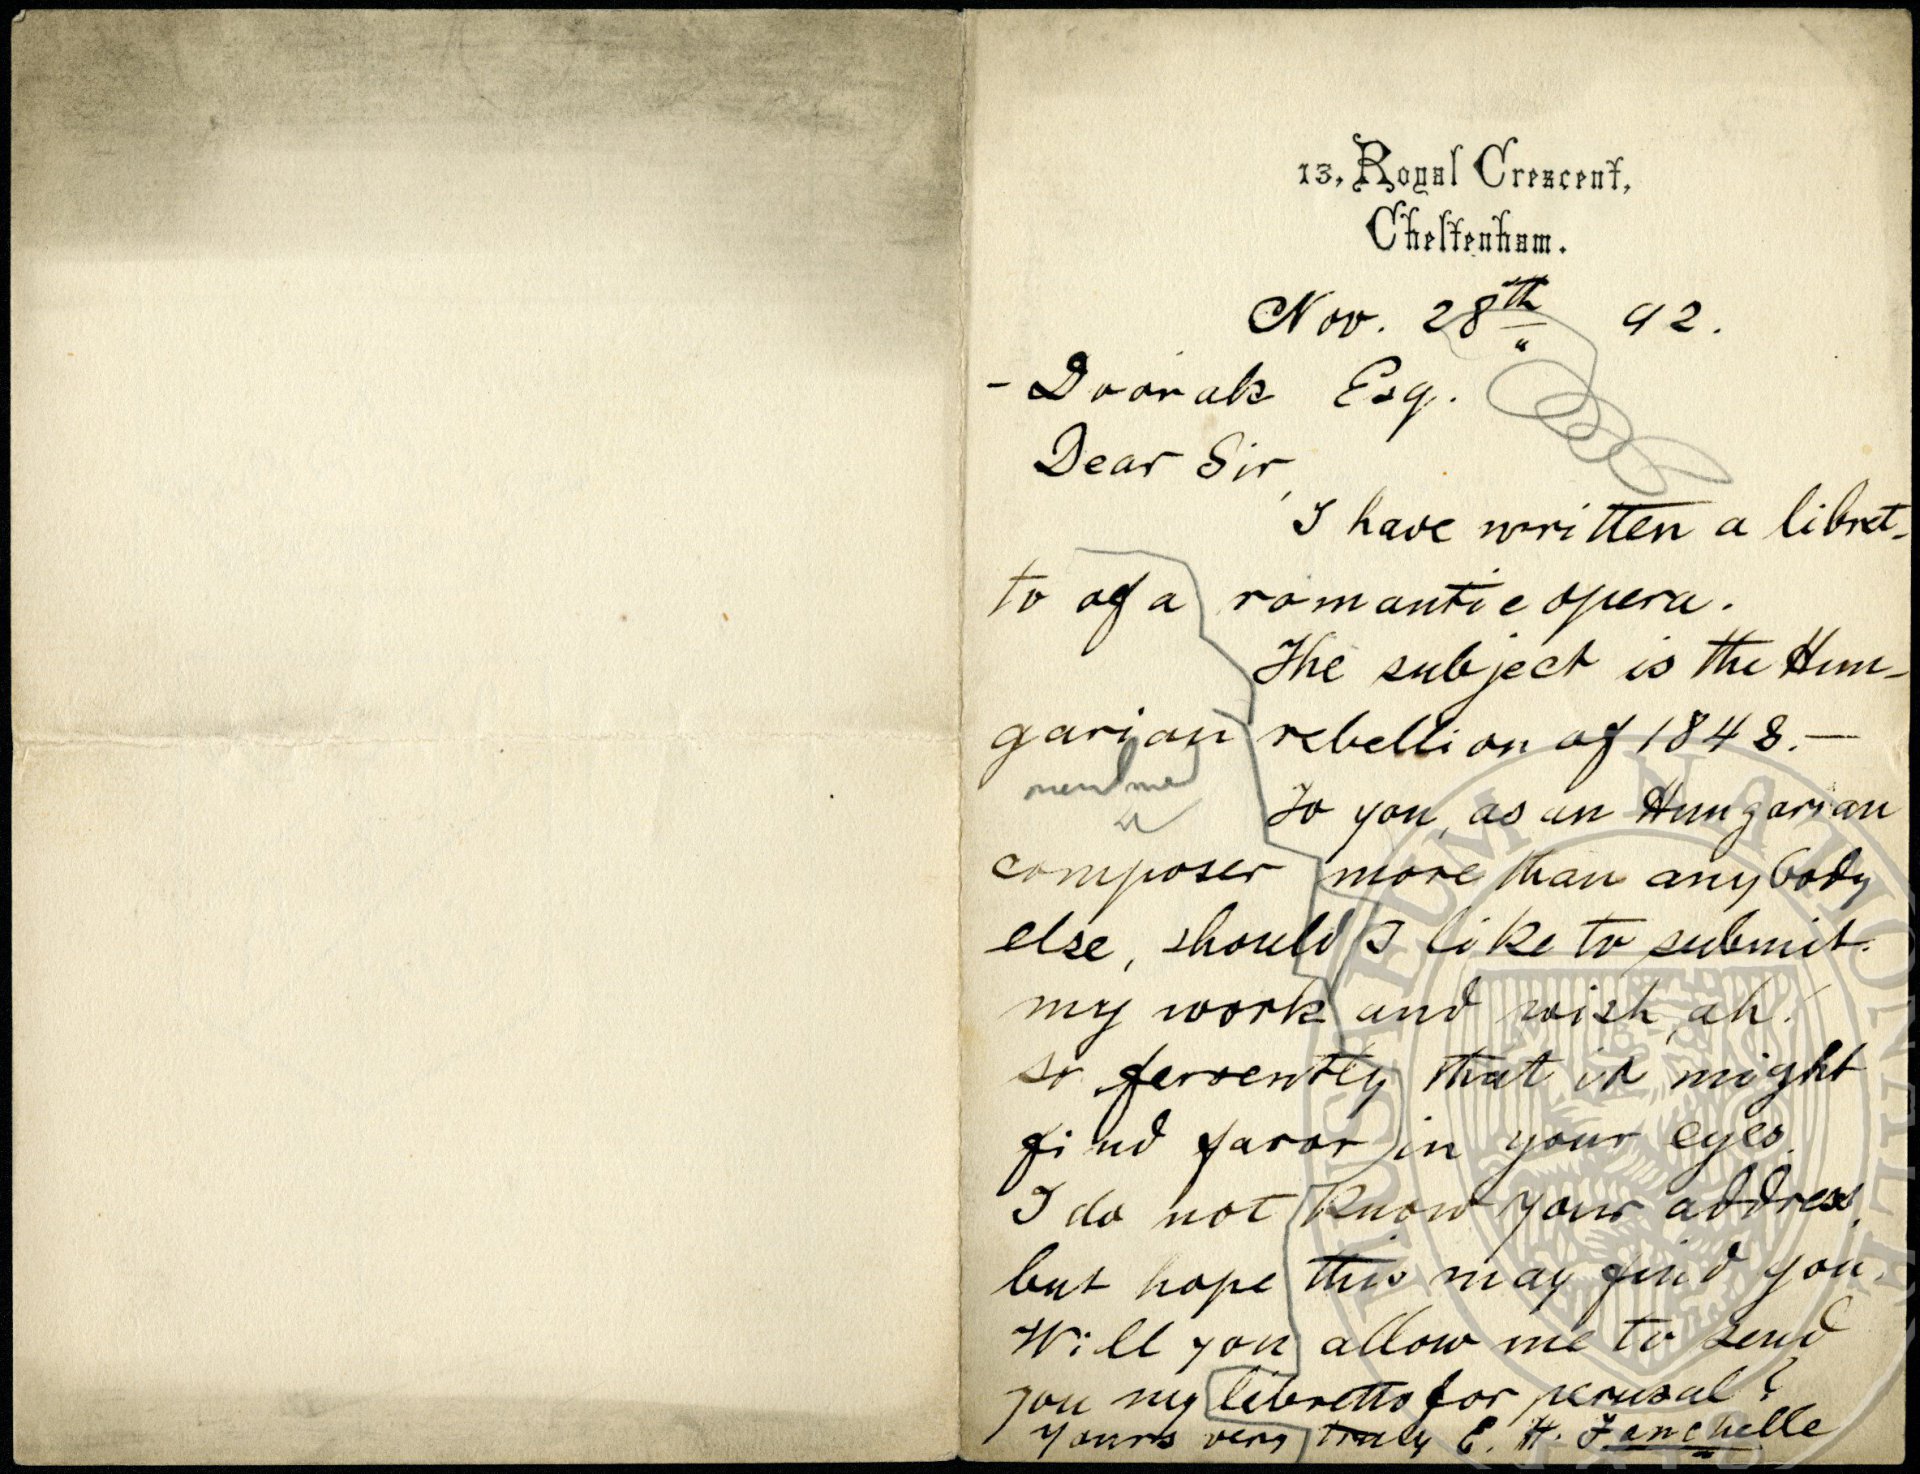 13, Royal Crescent,
Cheltenham.
Nov. 28th 92.
- Dvorak Esq.
Dear Sir,
I have written a libret-
to of a romantic opera.
The subject is the Hun-
garian rebellion of 1848. —
To you, as an Hungarian
composer more than anybody
else, should I like to submit
my work and wish, ah!
so fervently that it might
find favor in your eyes.
I do not know your address,
but hope this may find you.
Will you allow me to send
you my libretto for perusal?
Yours very truly E. H.
MUSEUM NATIONALE